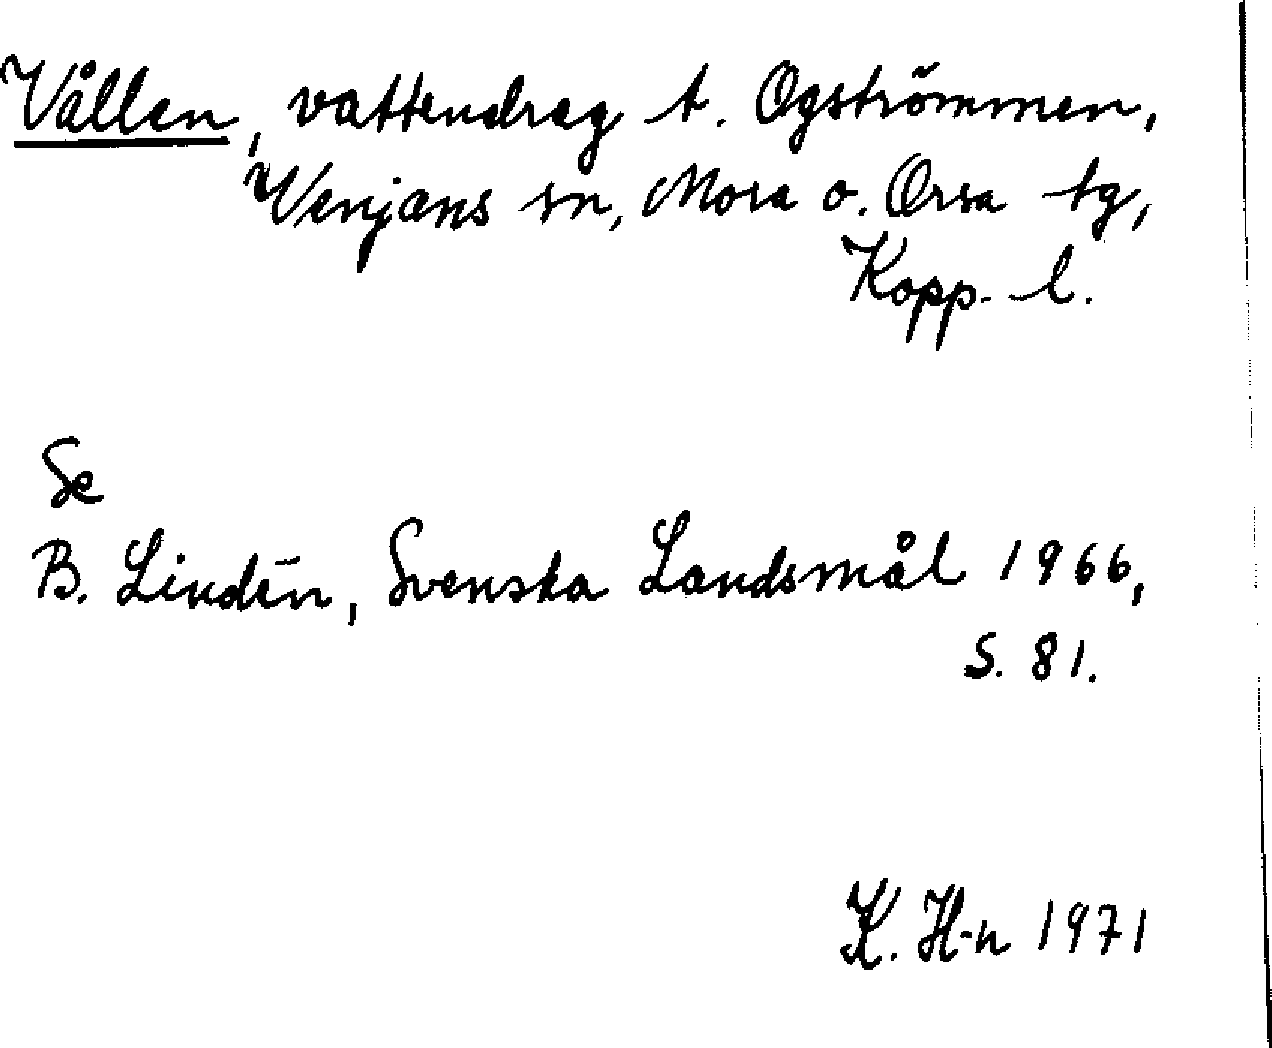 Vållen, vattendrag t. Ogströmmen,
Wenjans sn, Mora o. Orsa tg,
Kopp. l.
Se
B. Lindén, Svenska Landsmål 1966,
S. 81.
K. H-n 1971